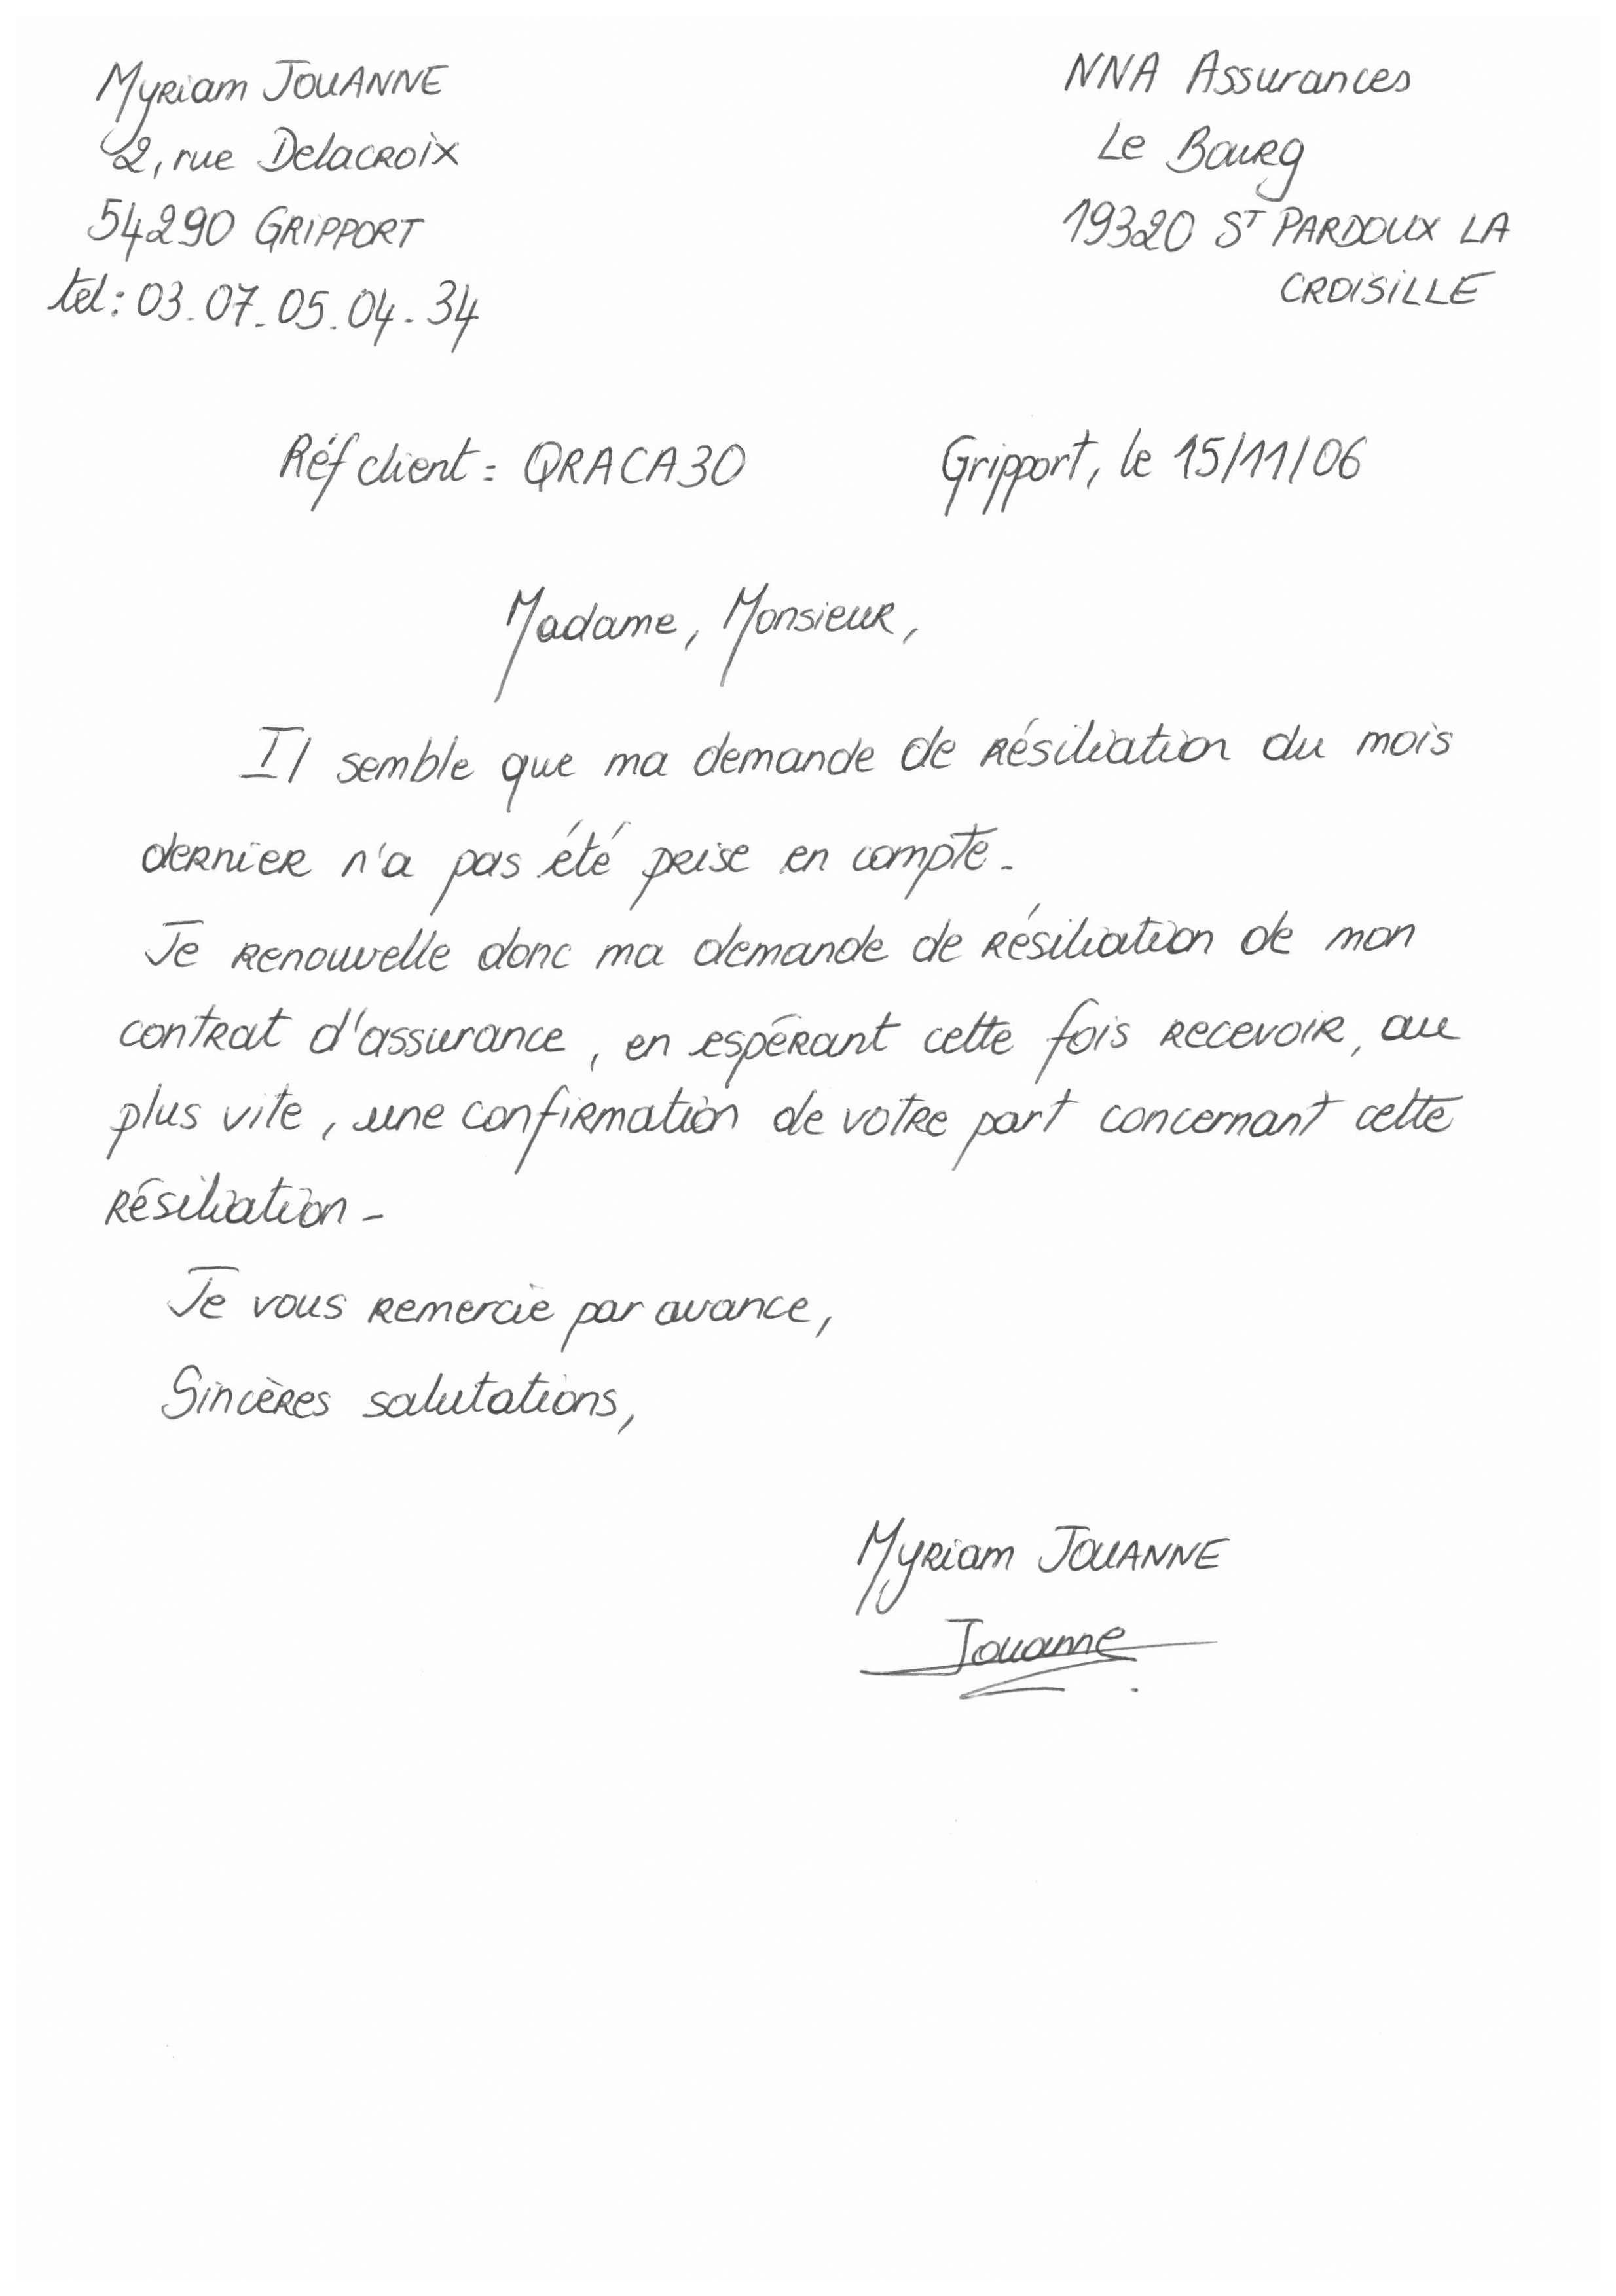 Myriam JOUANNE
2, rue Delacroix
54290 GRIPPORT
tel: 03.07.05.04.34
NNA Assurances
Le Bourg
19320 ST PARDOUX LA
CROISILLE
Réf client : QRACA30
Gripport, le 15/11/06
Madame, Monsieur,
Il semble que ma demande de résiliation du mois
dernier n'a pas été prise en compte.
Je renouvelle donc ma demande de résiliation de mon
contrat d'assurance, en espérant cette fois recevoir, au
plus vite, une confirmation de votre part concernant cette
résiliation.
Je vous remercie par avance,
Sincères salutations,
Myriam JOUANNE
Jouanne